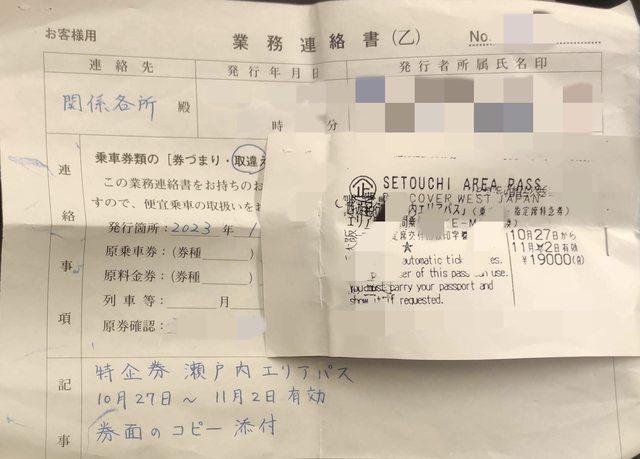 お客様用
業務連絡書(乙) No.
連絡先 発行年月日 発行者所属氏名印
関係各所 殿
時 分
連絡事項
乗車券類の [券づまり・取違え
この業務連絡書をお持ちのお
すので、便宜乗車の取扱いをお
発行箇所:2023年 1
原乗車券:(券種
原料金券:(券種
列車等: 月
原券確認:
企 SETOUCHI AREA PASS
COVER WEST JAPAN
内エリアパス」(乗 指定席特急券)
E-M
10月27日から
11月2日有効
¥19000
automatic tick es.
er of this pass can use.
carry your passport and
show it if requested.
記事
特企券 瀬戸内エリアパス
10月27日〜11月2日有効
券面のコピー添付